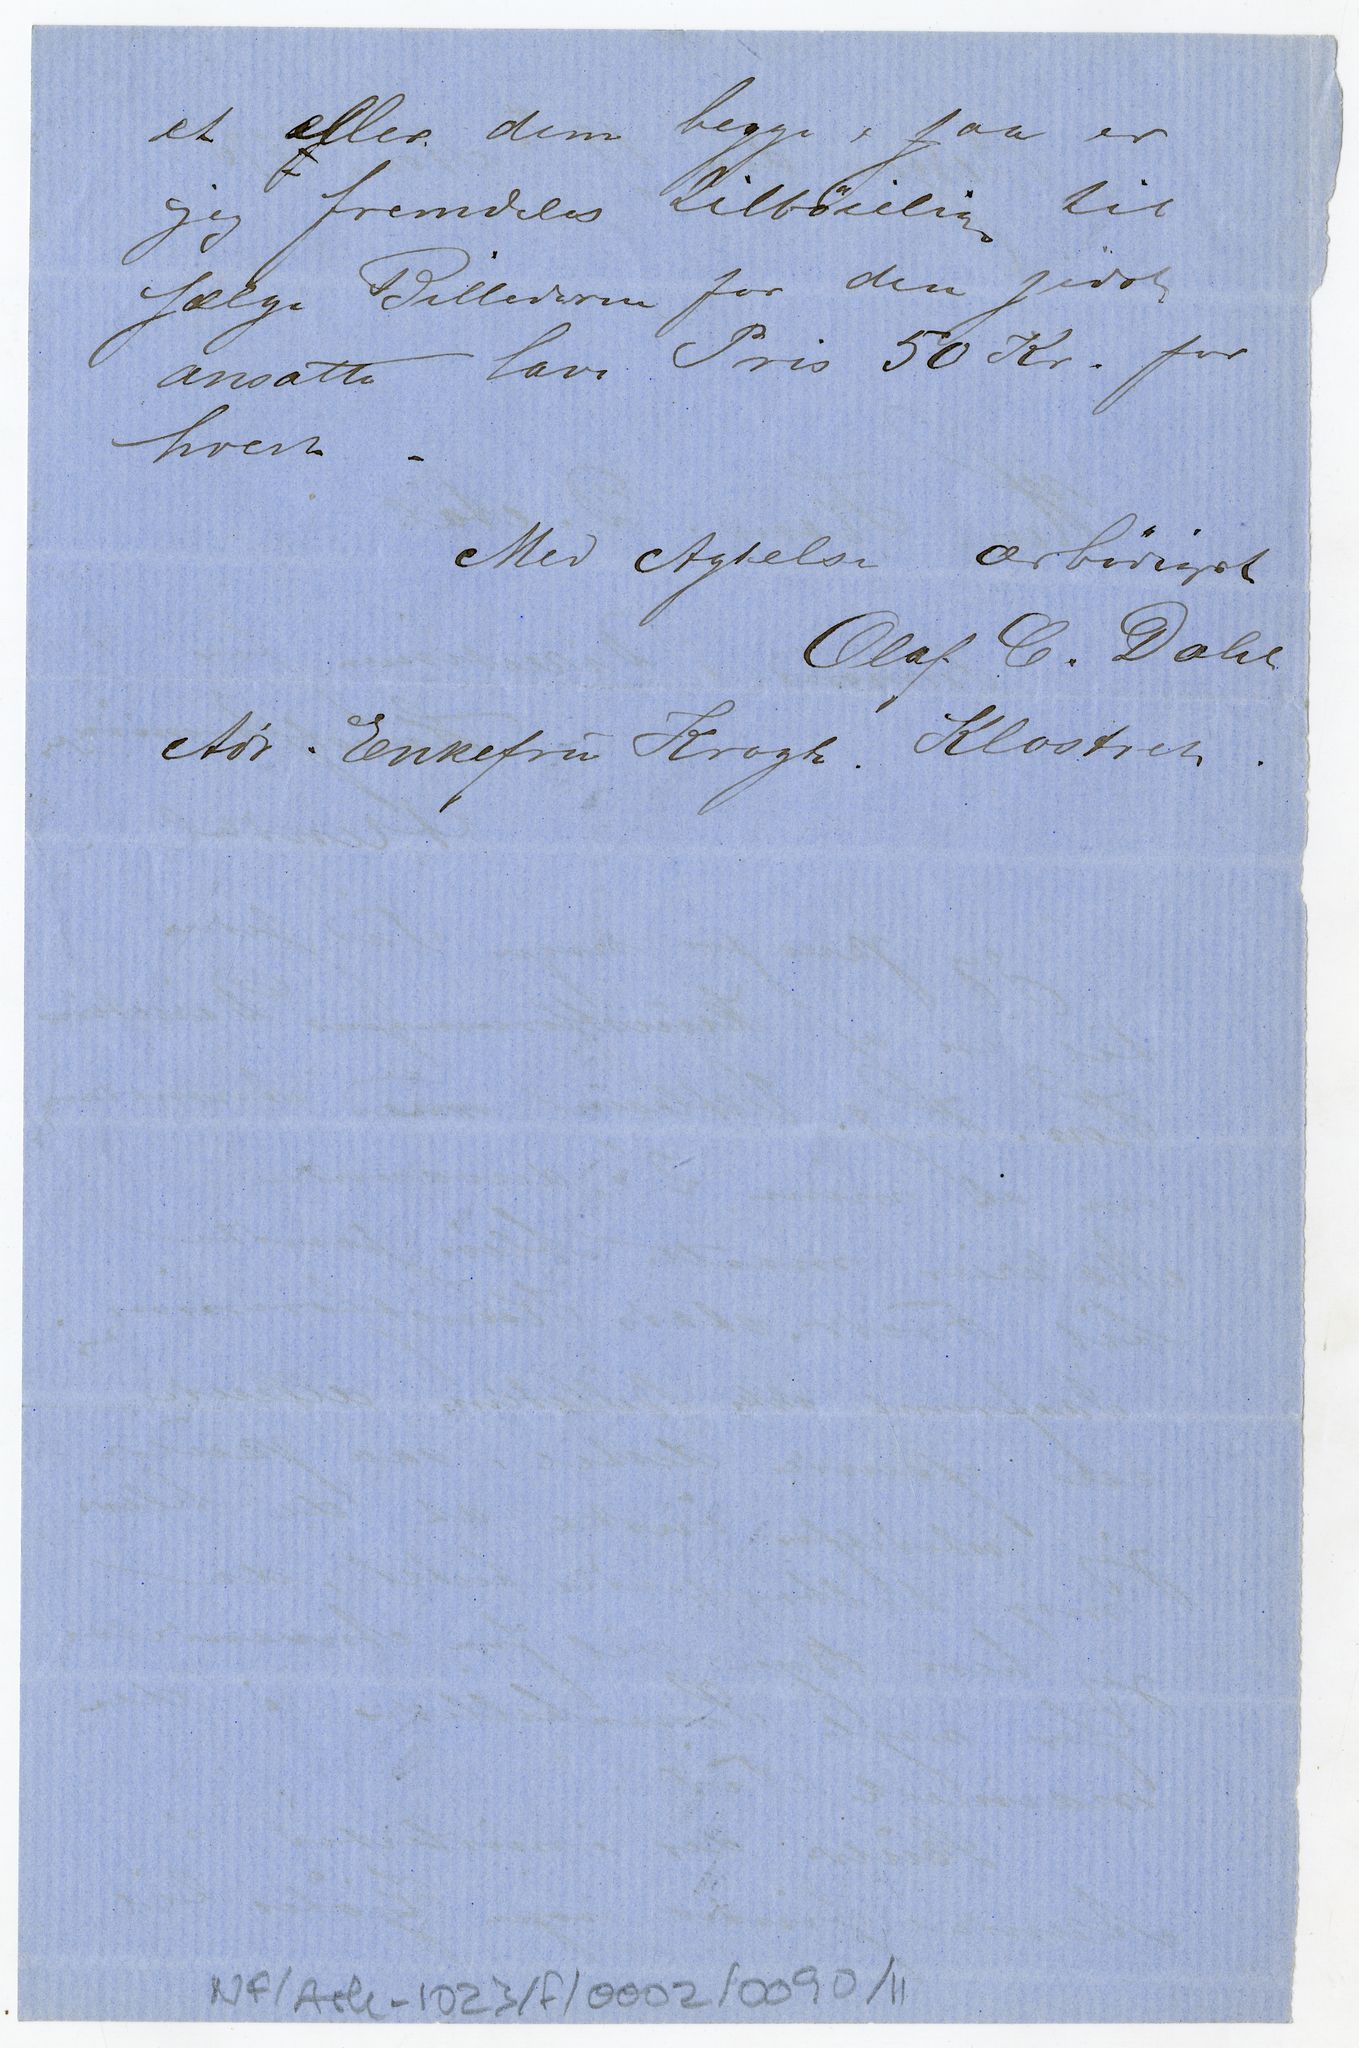 et eller dem begge, saa er
jeg fremdeles tilböielig til
sælge Billederne for den sidst
ansatte lave Pris 50 Kr. for
hvert.
Med Agtelse ærbödigst
Olaf C. Dahl
Adr. Enkefrü Krogh. Klostret.
NF/Ark-1023/F/0002/0090/11